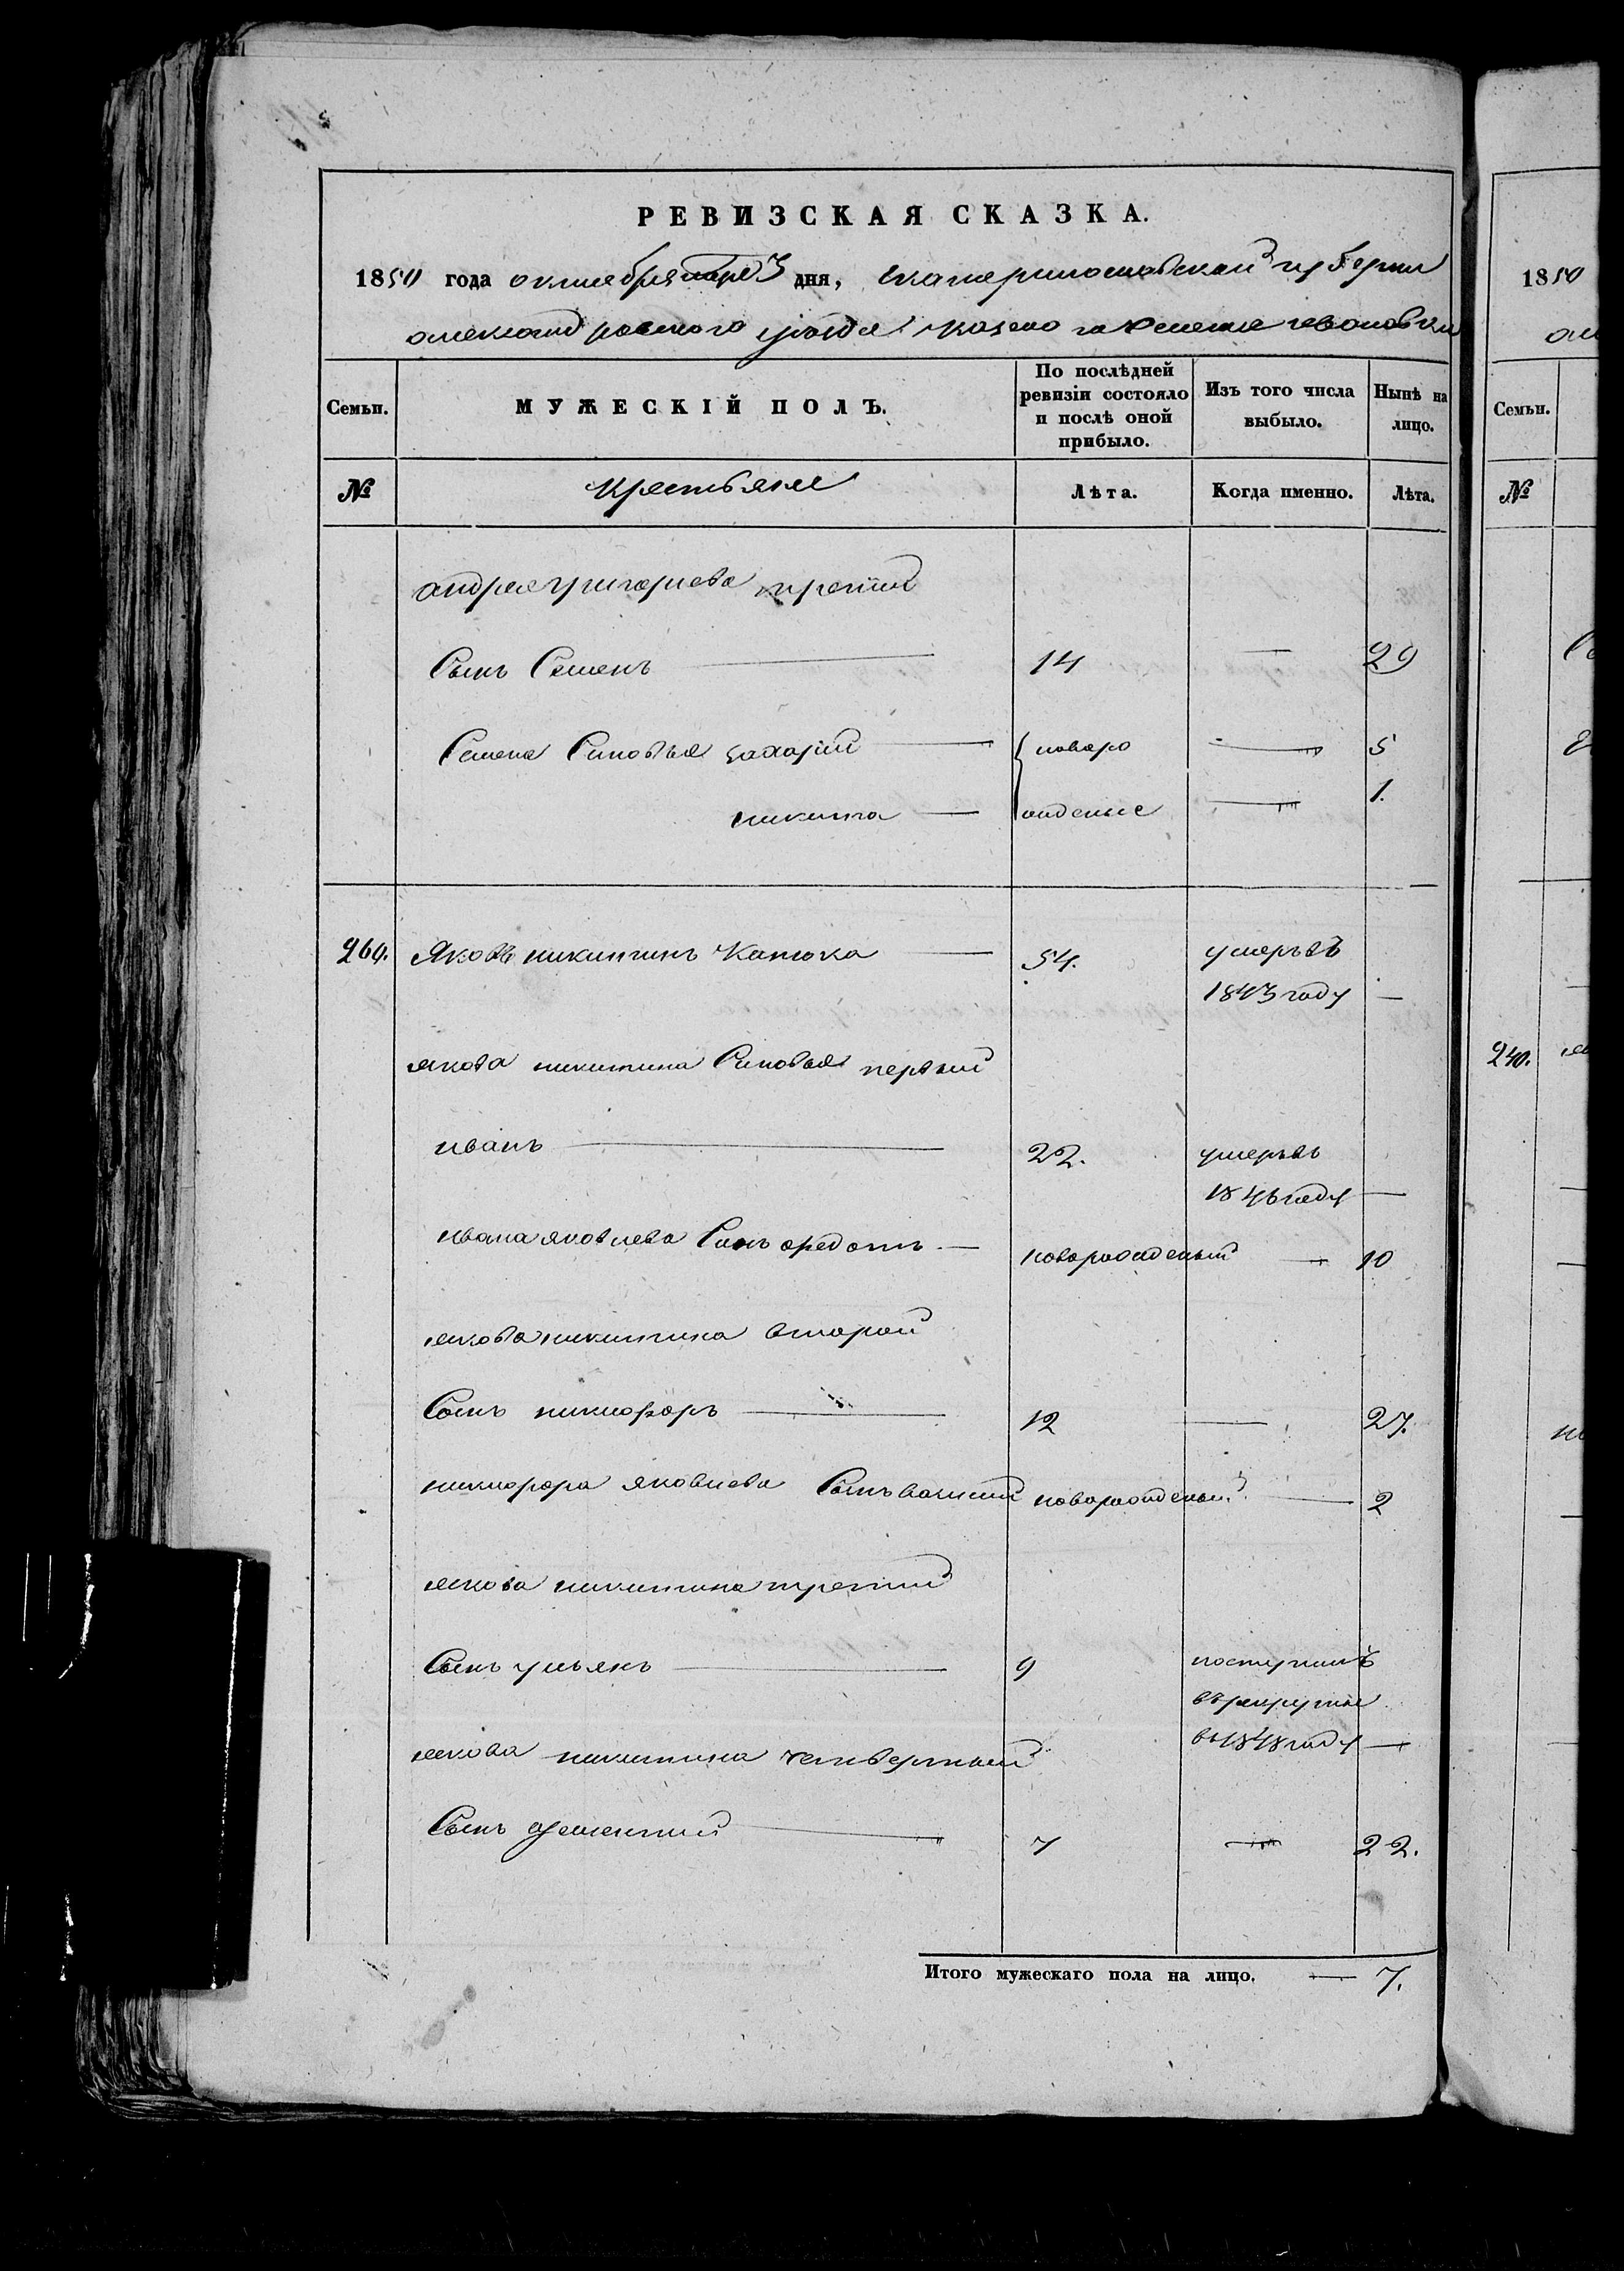 РЕВИЗСКАЯ СКАЗКА.
1850 года октября дня, екатеринославской губернии
александровского уезда казеного селения ивановки
Семьи. МУЖЕСКІЙ ПОЛЪ. По послѣдней ревизіи состояло и послѣ оной прибыло. Изъ того числа выбыло. Нынѣ на лицо.
№ крестьяне Лѣта. Когда именно. Лѣта.
андрея григориева третий
Сынъ Семенъ — 14 — 29
Семена Синовья захарий — новоро — 5
никита — жденые — 1.
269. Яковъ никитинъ Катюха — 54. умеръ въ
1843 году —
якова никитина Синовья первый
иванъ — 22. умеръ въ
1846 году —
ивана яковлева Синъ федотъ — новорожденый — 10
якова никитина второй
Сынъ никифоръ — 12 — 27.
никифора яковлева Сынъ василий новорожденый — 2
якова никитина третий
Сынъ ульянъ — 9 поступилъ
въ рекруты
въ 1848 году —
якова никитина четвертый
Сынъ дементий — 7 — 22.
Итого мужескаго пола на лицо. — 7.
1850
Семьи.
№
240.